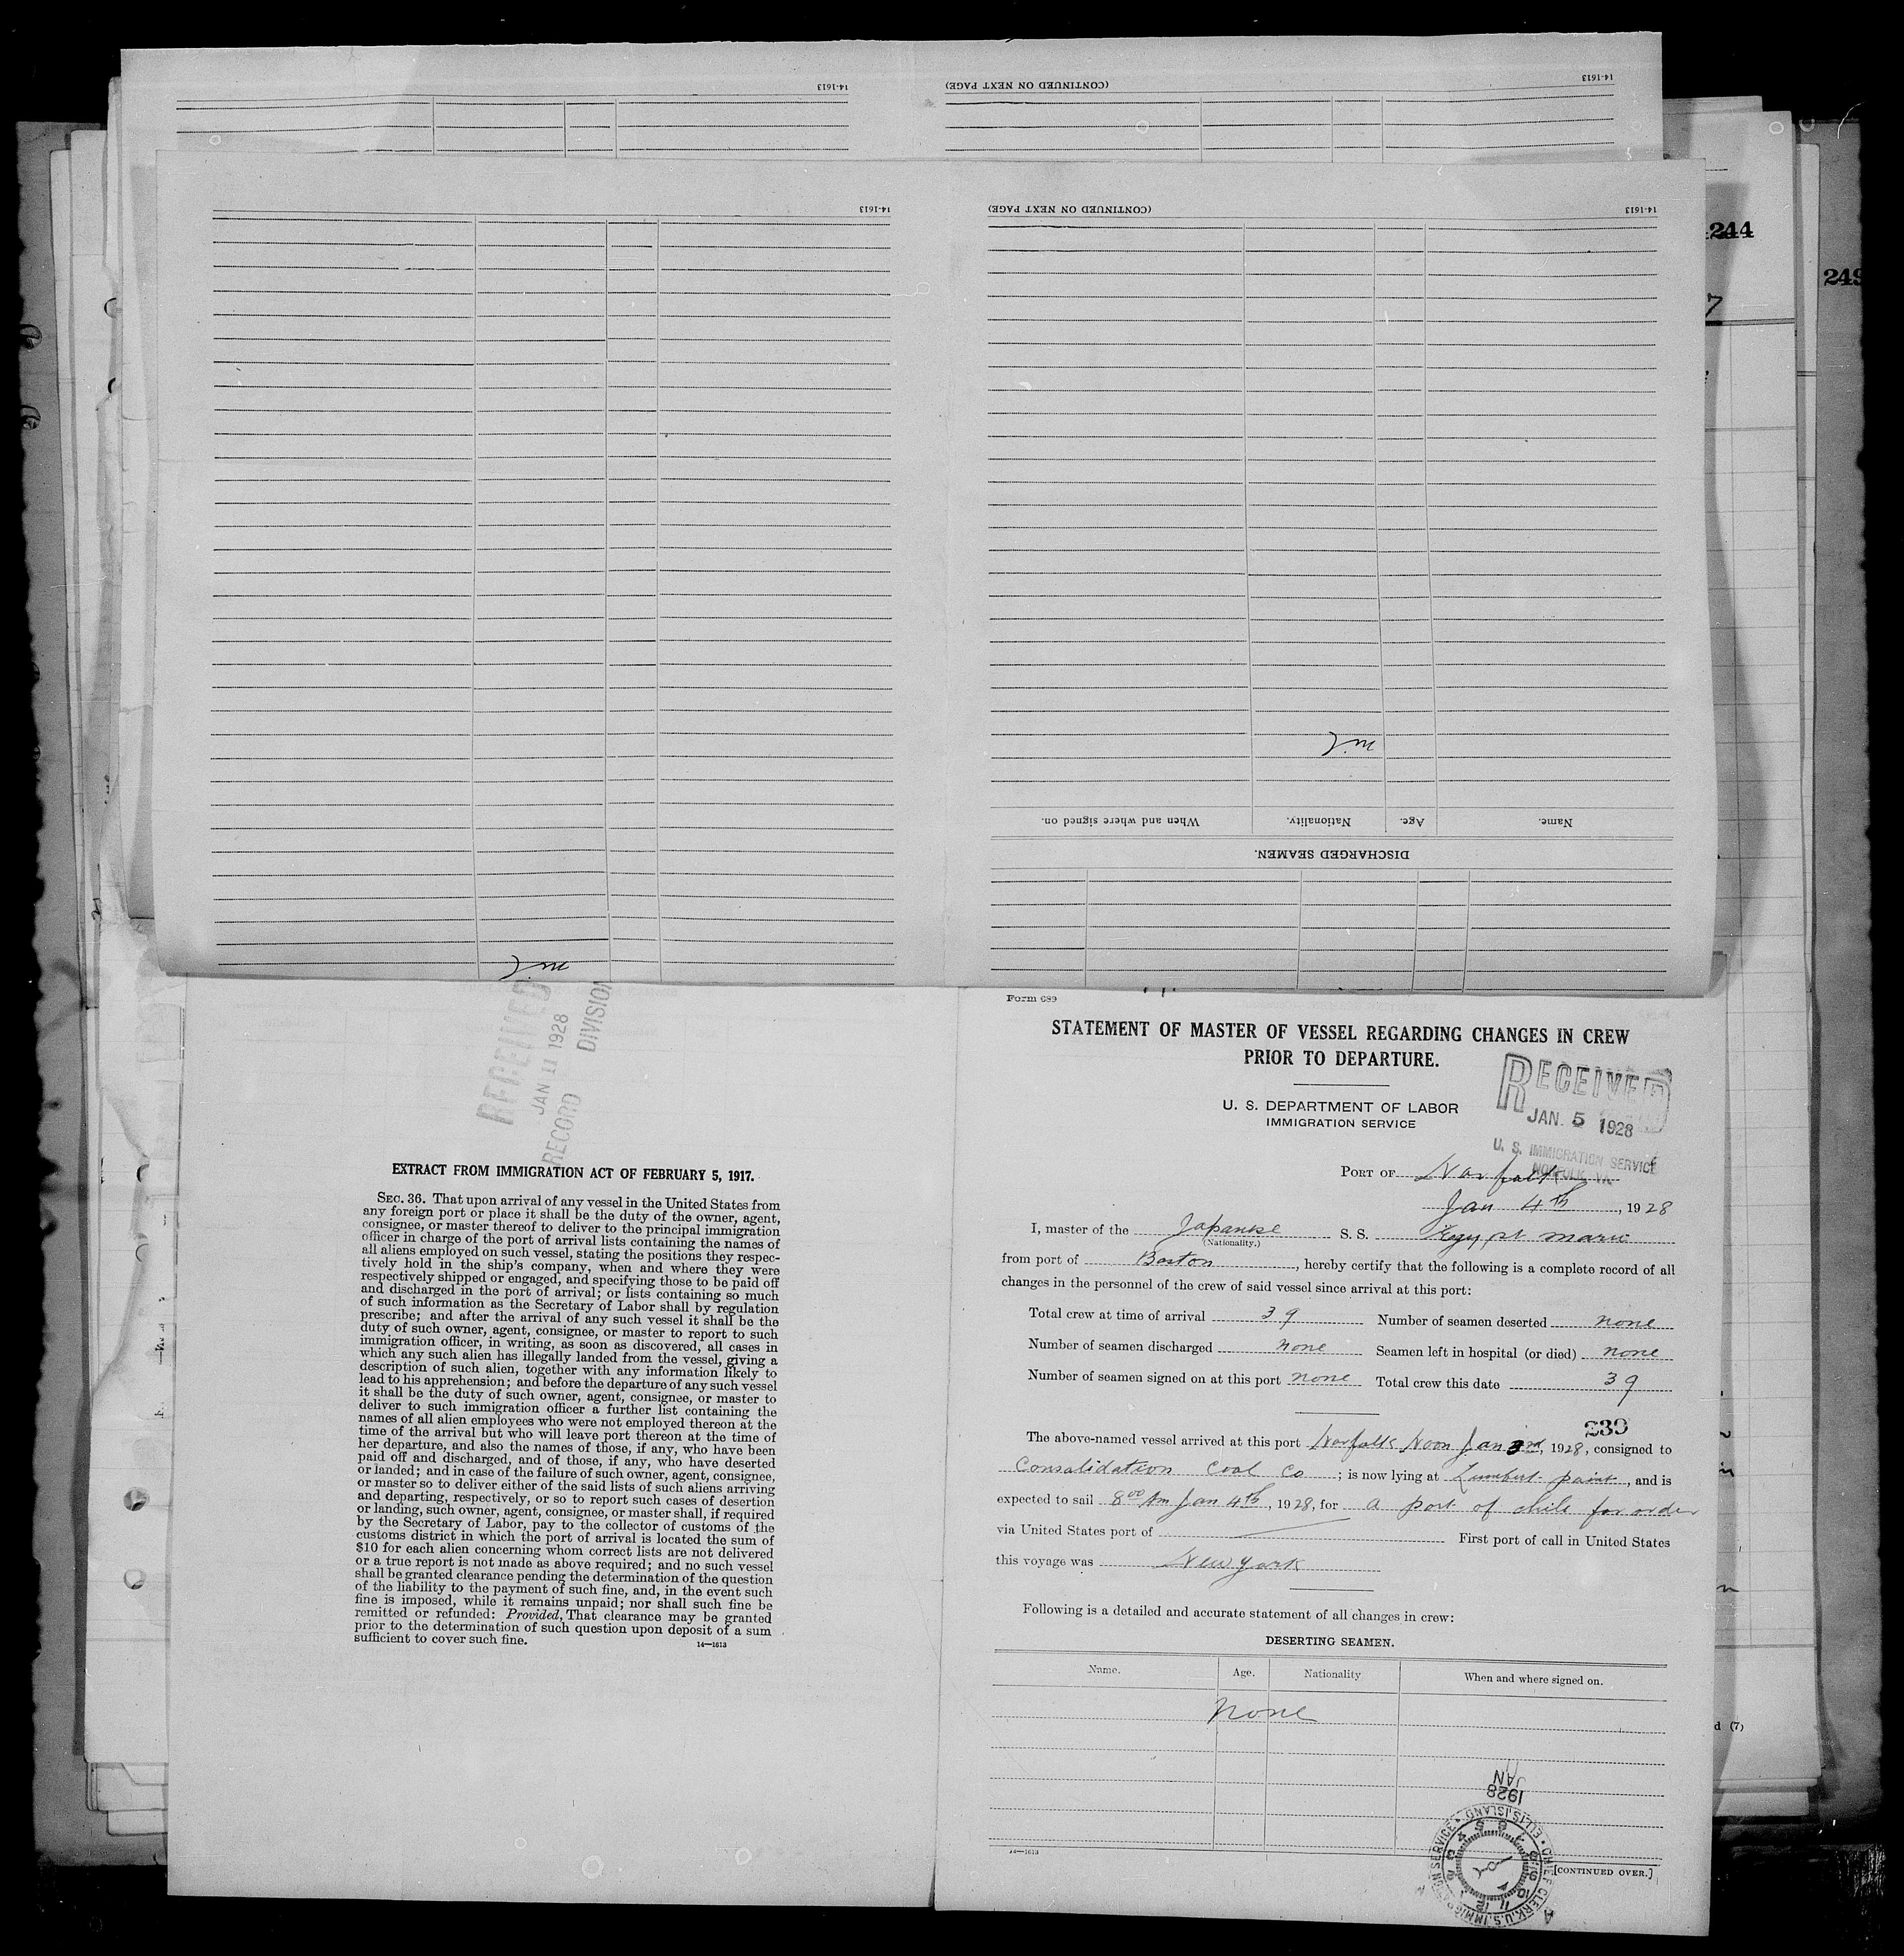 14-1613
(CONTINUED ON NEXT PAGE)
14-1613
14-1613
(CONTINUED ON NEXT PAGE)
14-1613
244
249
7
When and where signed on.
Nationality.
Age.
Name.
DISCHARGED SEAMEN.
RECEIVED
JAN 11 1928
RECORD DIVISION
EXTRACT FROM IMMIGRATION ACT OF FEBRUARY 5, 1917.
SEC. 36. That upon arrival of any vessel in the United States from
any foreign port or place it shall be the duty of the owner, agent,
consignee, or master thereof to deliver to the principal immigration
officer in charge of the port of arrival lists containing the names of
all aliens employed on such vessel, stating the positions they respec-
tively hold in the ship's company, when and where they were
respectively shipped or engaged, and specifying those to be paid off
and discharged in the port of arrival; or lists containing so much
of such information as the Secretary of Labor shall by regulation
prescribe; and after the arrival of any such vessel it shall be the
duty of such owner, agent, consignee, or master to report to such
immigration officer, in writing, as soon as discovered, all cases in
which any such alien has illegally landed from the vessel, giving a
description of such alien, together with any information likely to
lead to his apprehension; and before the departure of any such vessel
it shall be the duty of such owner, agent, consignee, or master to
deliver to such immigration officer a further list containing the
names of all alien employees who were not employed thereon at the
time of the arrival but who will leave port thereon at the time of
her departure, and also the names of those, if any, who have been
paid off and discharged, and of those, if any, who have deserted
or landed; and in case of the failure of such owner, agent, consignee,
or master so to deliver either of the said lists of such aliens arriving
and departing, respectively, or so to report such cases of desertion
or landing, such owner, agent, consignee, or master shall, if required
by the Secretary of Labor, pay to the collector of customs of the
customs district in which the port of arrival is located the sum of
$10 for each alien concerning whom correct lists are not delivered
or a true report is not made as above required; and no such vessel
shall be granted clearance pending the determination of the question
of the liability to the payment of such fine, and, in the event such
fine is imposed, while it remains unpaid; nor shall such fine be
remitted or refunded: Provided, That clearance may be granted
prior to the determination of such question upon deposit of a sum
sufficient to cover such fine.
14—1613
Form 689
STATEMENT OF MASTER OF VESSEL REGARDING CHANGES IN CREW
PRIOR TO DEPARTURE.
U. S. DEPARTMENT OF LABOR
IMMIGRATION SERVICE
RECEIVED
JAN. 5 1928
U. S. IMMIGRATION SERVICE
NORFOLK, VA.
PORT OF Norfolk
Jan 4th, 1928
I, master of the Japanese S. S. Egypt maru
(Nationality.)
from port of Boston, hereby certify that the following is a complete record of all
changes in the personnel of the crew of said vessel since arrival at this port:
Total crew at time of arrival 39 Number of seamen deserted none
Number of seamen discharged none Seamen left in hospital (or died) none
Number of seamen signed on at this port none Total crew this date 39
239
The above-named vessel arrived at this port Norfolk Noon Jan 3rd, 1928, consigned to
Consalidation coal co; is now lying at Lambert point, and is
expected to sail 8 00 Am Jan 4th, 1928, for a port of chile for order
via United States port of First port of call in United States
this voyage was New york
Following is a detailed and accurate statement of all changes in crew:
DESERTING SEAMEN.
Name. Age. Nationality When and where signed on.
none
JAN
1928
CHIEF CLERK, U.S. IMMIGRATION SERVICE • ELLIS ISLAND •
14—1613
[CONTINUED OVER.]
d (7)